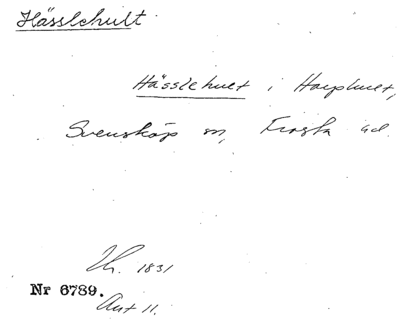 Hässlehult
Hässlehult i Harphult,
Svensköp sn, Frosta hd.
1831
Nr 6789.
Ant 11.